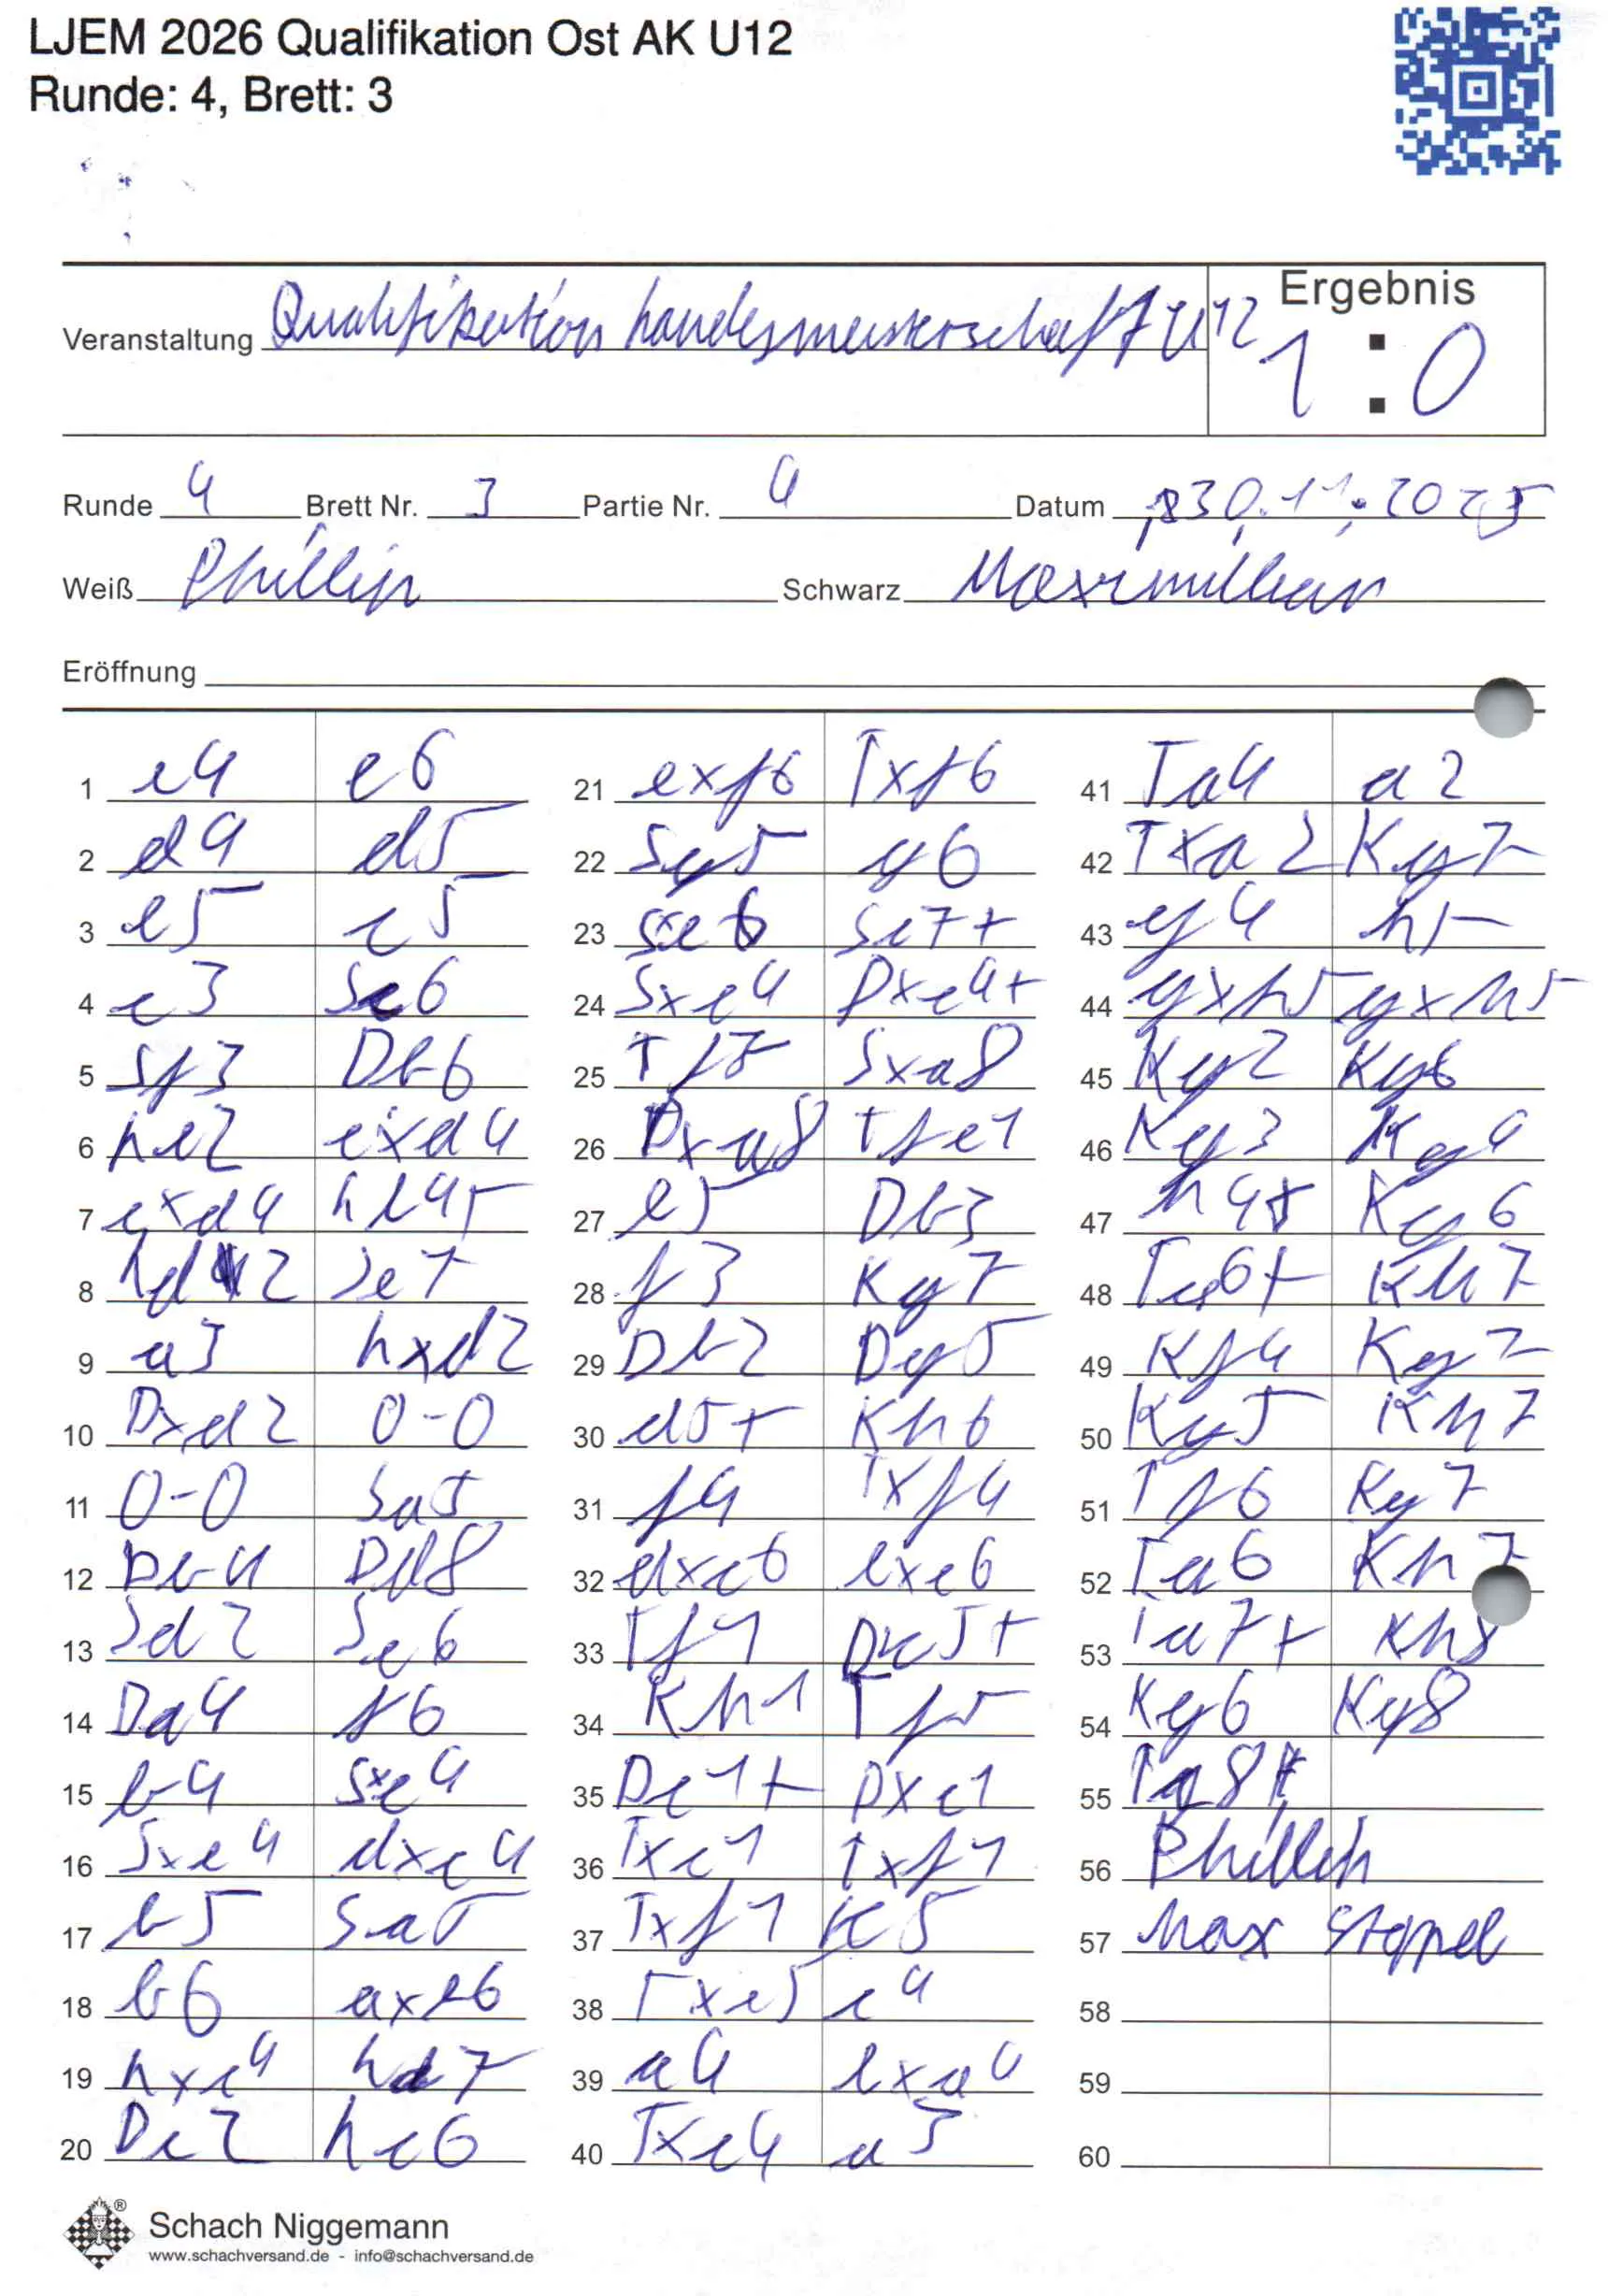 LJEM 2026 Qualifikation Ost AK U12
Runde: 4, Brett: 3
Veranstaltung Qualifikation Landesmeisterschaft U12
Ergebnis
1 : 0
Runde 4 Brett Nr. 3 Partie Nr. 4 Datum 30.11.2025
Weiß Phillip Schwarz Maximilian
Eröffnung
1 e4 e6
2 d4 d5
3 e5 c5
4 c3 Sc6
5 Sf3 Db6
6 Le2 cxd4
7 cxd4 Lb4+
8 Ld2 Se7
9 a3 Lxd2
10 Dxd2 0-0
11 0-0 Sa5
12 Db4 Dd8
13 Sd2 Sc6
14 Da4 f6
15 b4 Sxe4
16 Sxe4 dxc4
17 b5 Sa5
18 b6 axb6
19 Lxc4 Ld7
20 Dc2 Lc6
21 exf6 Txf6
22 Sg5 g6
23 Sxe6 Sc7+
24 Sxc4 Dxc4+
25 Tf7 Sxa8
26 Dxa8 Tfc1
27 e5 Db3
28 f3 Kg7
29 Db2 Dg5
30 d5+ Kh6
31 f4 Txf4
32 dxc6 bxc6
33 Tf1 Dc5+
34 Kh1 Tf5
35 Dc1+ Dxc1
36 Txc1 Txf1
37 Txf1 c5
38 Txc5 c4
39 a4 bxa4
40 Txc4 a3
41 Ta4 a2
42 Txa2 Kg7
43 g4 h5
44 gxh5 gxh5
45 Kg2 Kg6
46 Kg3 Kg4
47 h4+ Kg6
48 Ta6+ Kh7
49 Kf4 Kg7
50 Kg5 Kh7
51 Tf6 Kg7
52 Ta6 Kh7
53 Ta7+ Kh8
54 Kg6 Kg8
55 Ta8#
56 Phillip
57 Max Stoppel
58
59
60
Schach Niggemann
www.schachversand.de - info@schachversand.de